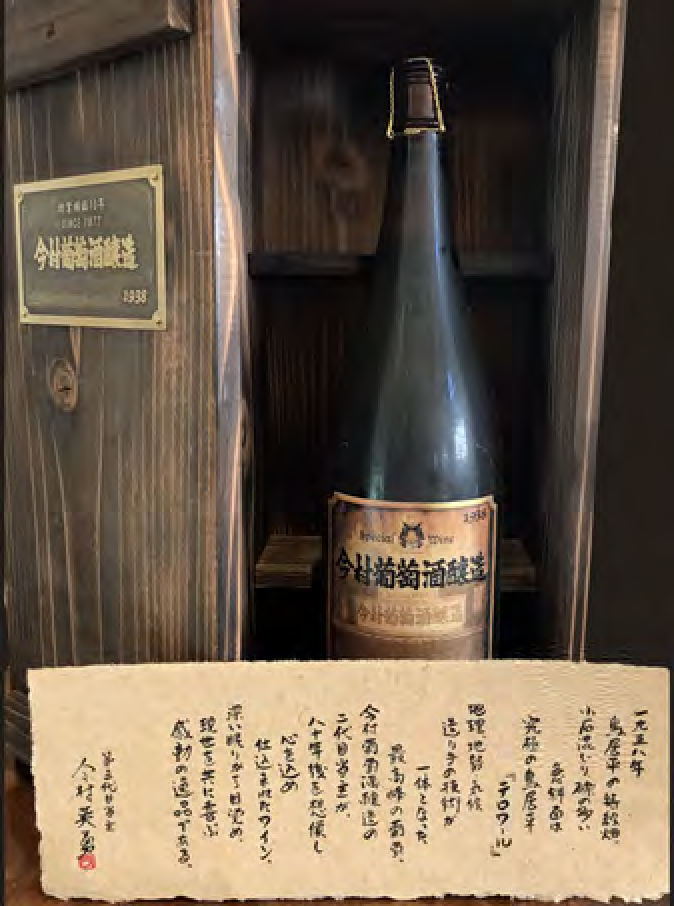 SINCE 1877
今村葡萄酒醸造
1938
1938
Special Wine
今村葡萄酒醸造
今村葡萄酒醸造
一九三八年
鳥居平の葡萄畑。
小石混じり砂の多い
急斜面は
究極の鳥居平
『テロワール』
地理、地質、気候
造り手の技術が
一体となった
最高峰の葡萄。
今村葡萄酒醸造の
二代目当主が、
八十年後を想像し
心を込め
仕込まれたワイン。
深い眠りから目覚め、
現世を共に喜ぶ
感動の逸品である。
第三代目当主
今村英勇